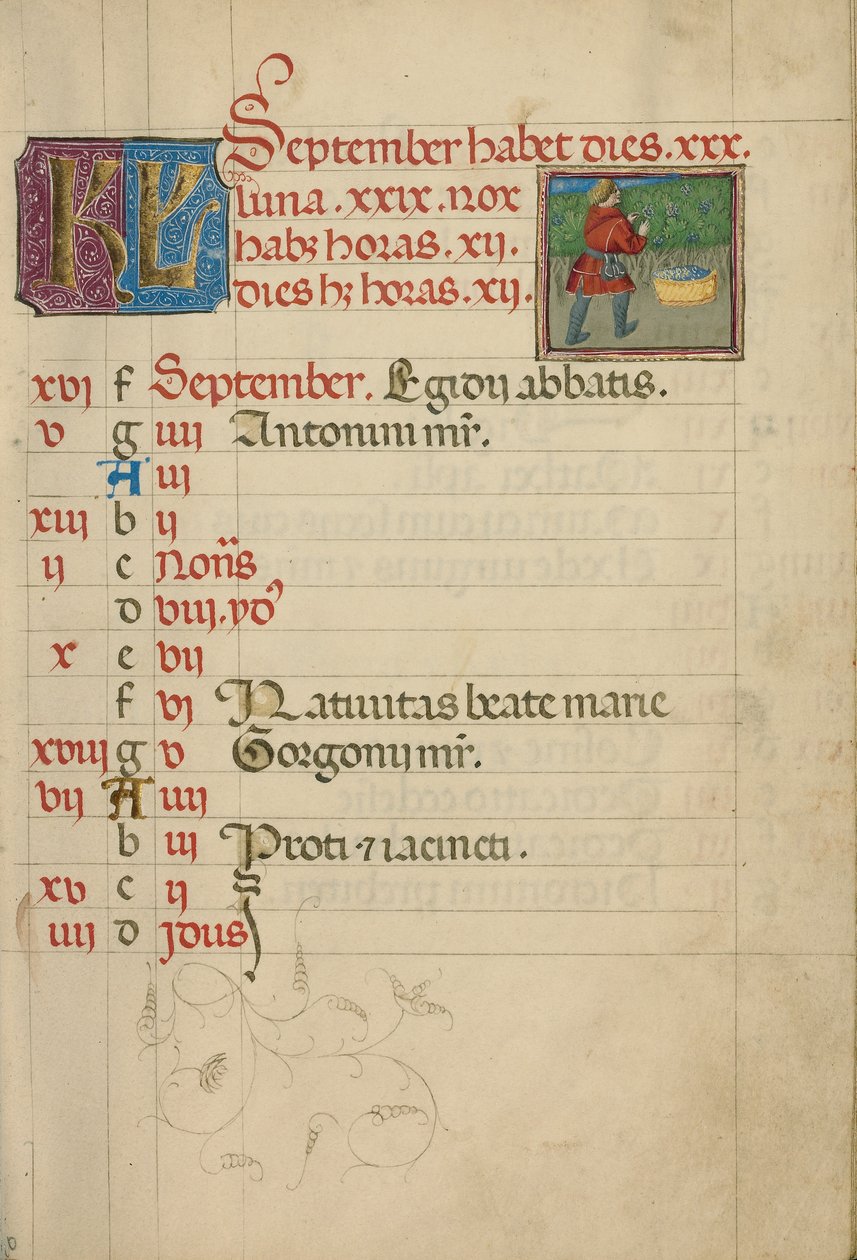 KL September habet dies.xxx.
luna.xxix.nox
habꝫ horas.xij.
dies hꝫ horas.xij.
xvj f September. Egidij abbatis.
v g iiij Antonini mr̃.
A iij
xiij b ij
ij c Noñs
d viij.ydꝰ
x e vij
f vj Natiuitas beate marie
xviij g v Gorgonij mr̃.
vij A iiij
b iij Proti ⁊ iacincti.
xv c ij
iiij d jdus